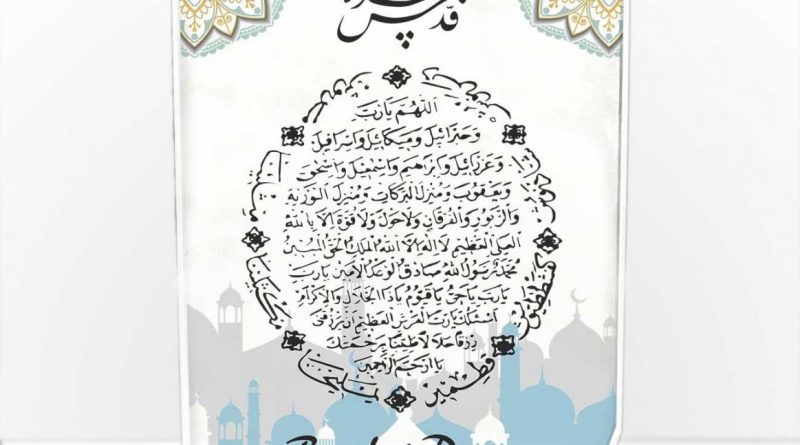 اَللّٰهُمَّ يَارَبَّ
وَجَبْرَائِيلَ وَمِيكَائِلَ وَاِسْرَافِيلَ
وَعَزْرَائِيلَ وَاِبْرَاهِيمَ وَاِسْمٰعِيلَ وَاِسْحٰقَ
وَيَعْقُوبَ وَمُنْزِلَ الْبَرَكَاتِ وَمُنْزِلَ التَّوْرٰيةِ
وَالزَّبُورِ وَالْفُرْقَانِ وَلَاحَوْلَ وَلَاقُوَّةَ اِلَّا بِاللّٰهِ
الْعَلِىِّ الْعَظِيمِ لَا اِلٰهَ اِلَّا اللّٰهُ الْمَلِكُ الْحَقُّ الْمُبِينُ
مُحَمَّدٌ رَسُولُ اللّٰهِ صَادِقُ الْوَعْدِ الْاَمِينِ يَارَبِّ
يَارَبِّ يَاحَىُّ يَاقَيُّومُ يَاذَا الْجَلَالِ وَالْاِكْرَامِ
اَسْئَلُكَ يَارَبَّ الْعَرْشِ الْعَظِيمِ اَنْ تَرْزُقَنِى
رِزْقًا حَلَالًا طَيِّبًا بِرَحْمَتِكَ
يَا اَرْحَمَ الرَّاحِمِينَ
يمليخا
قطمير